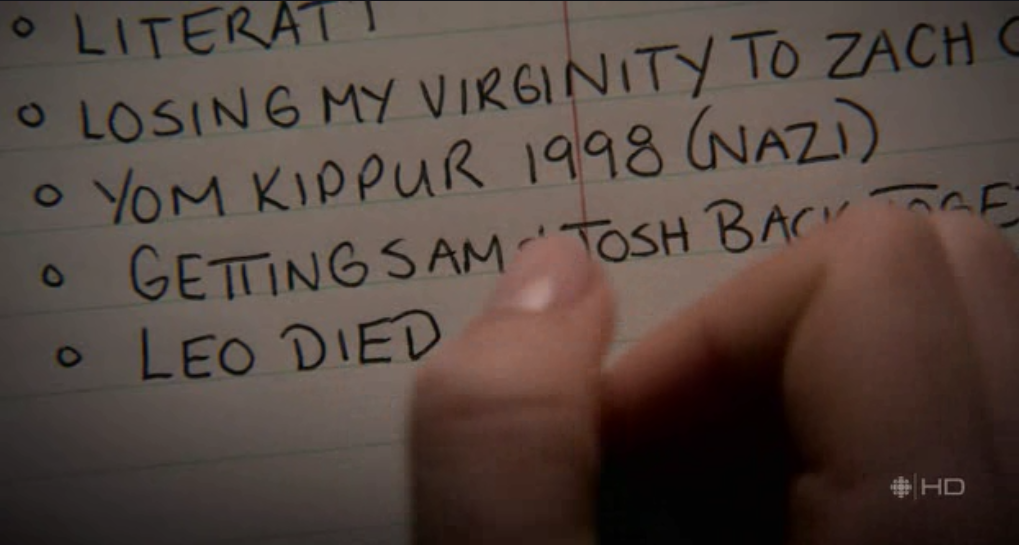 LOSING MY VIRGINITY TO ZACH
YOM KIPPUR 1998 (NAZI)
GETTING SAM JOSH BACK
LEO DIED
HD